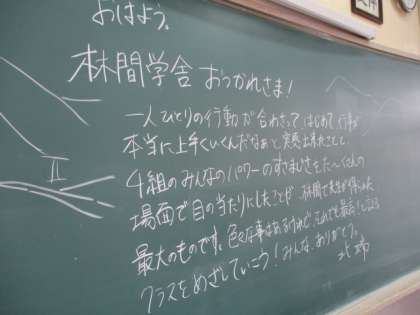 おはよう。
林間学舎 おつかれさま!
一人ひとりの行動が合わさって はじめて 行事が
本当に上手くいくんだなぁと 実感出来たことと、
4組のみんなのパワーのすさまじさをたくさんの
場面で目の当たりにしたことが、林間で先生が得られた
最大のものです。色々な事はあるけれど、それでも最高!と言える
クラスをめざしていこう!みんな、ありがとう。